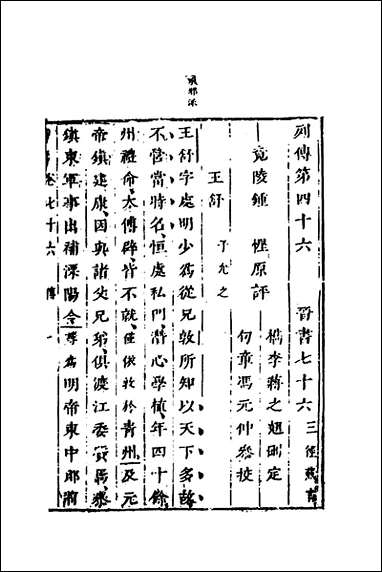 琅邪派
列傳第四十六　晉書七十六
竟陵鍾　惺原評
檇李蔣之翹刪定
句章馮元仲參校
王舒　子允之
王舒字處明少為從兄敦所知以天下多故
不營當時名恒處私門潛心學植年四十餘
州禮命太傅辟皆不就及元
帝鎮建康因與諸父兄弟俱渡江委質焉
鎮東軍事出補溧陽令尋為明帝東中郎將
卷七十六　傳　一